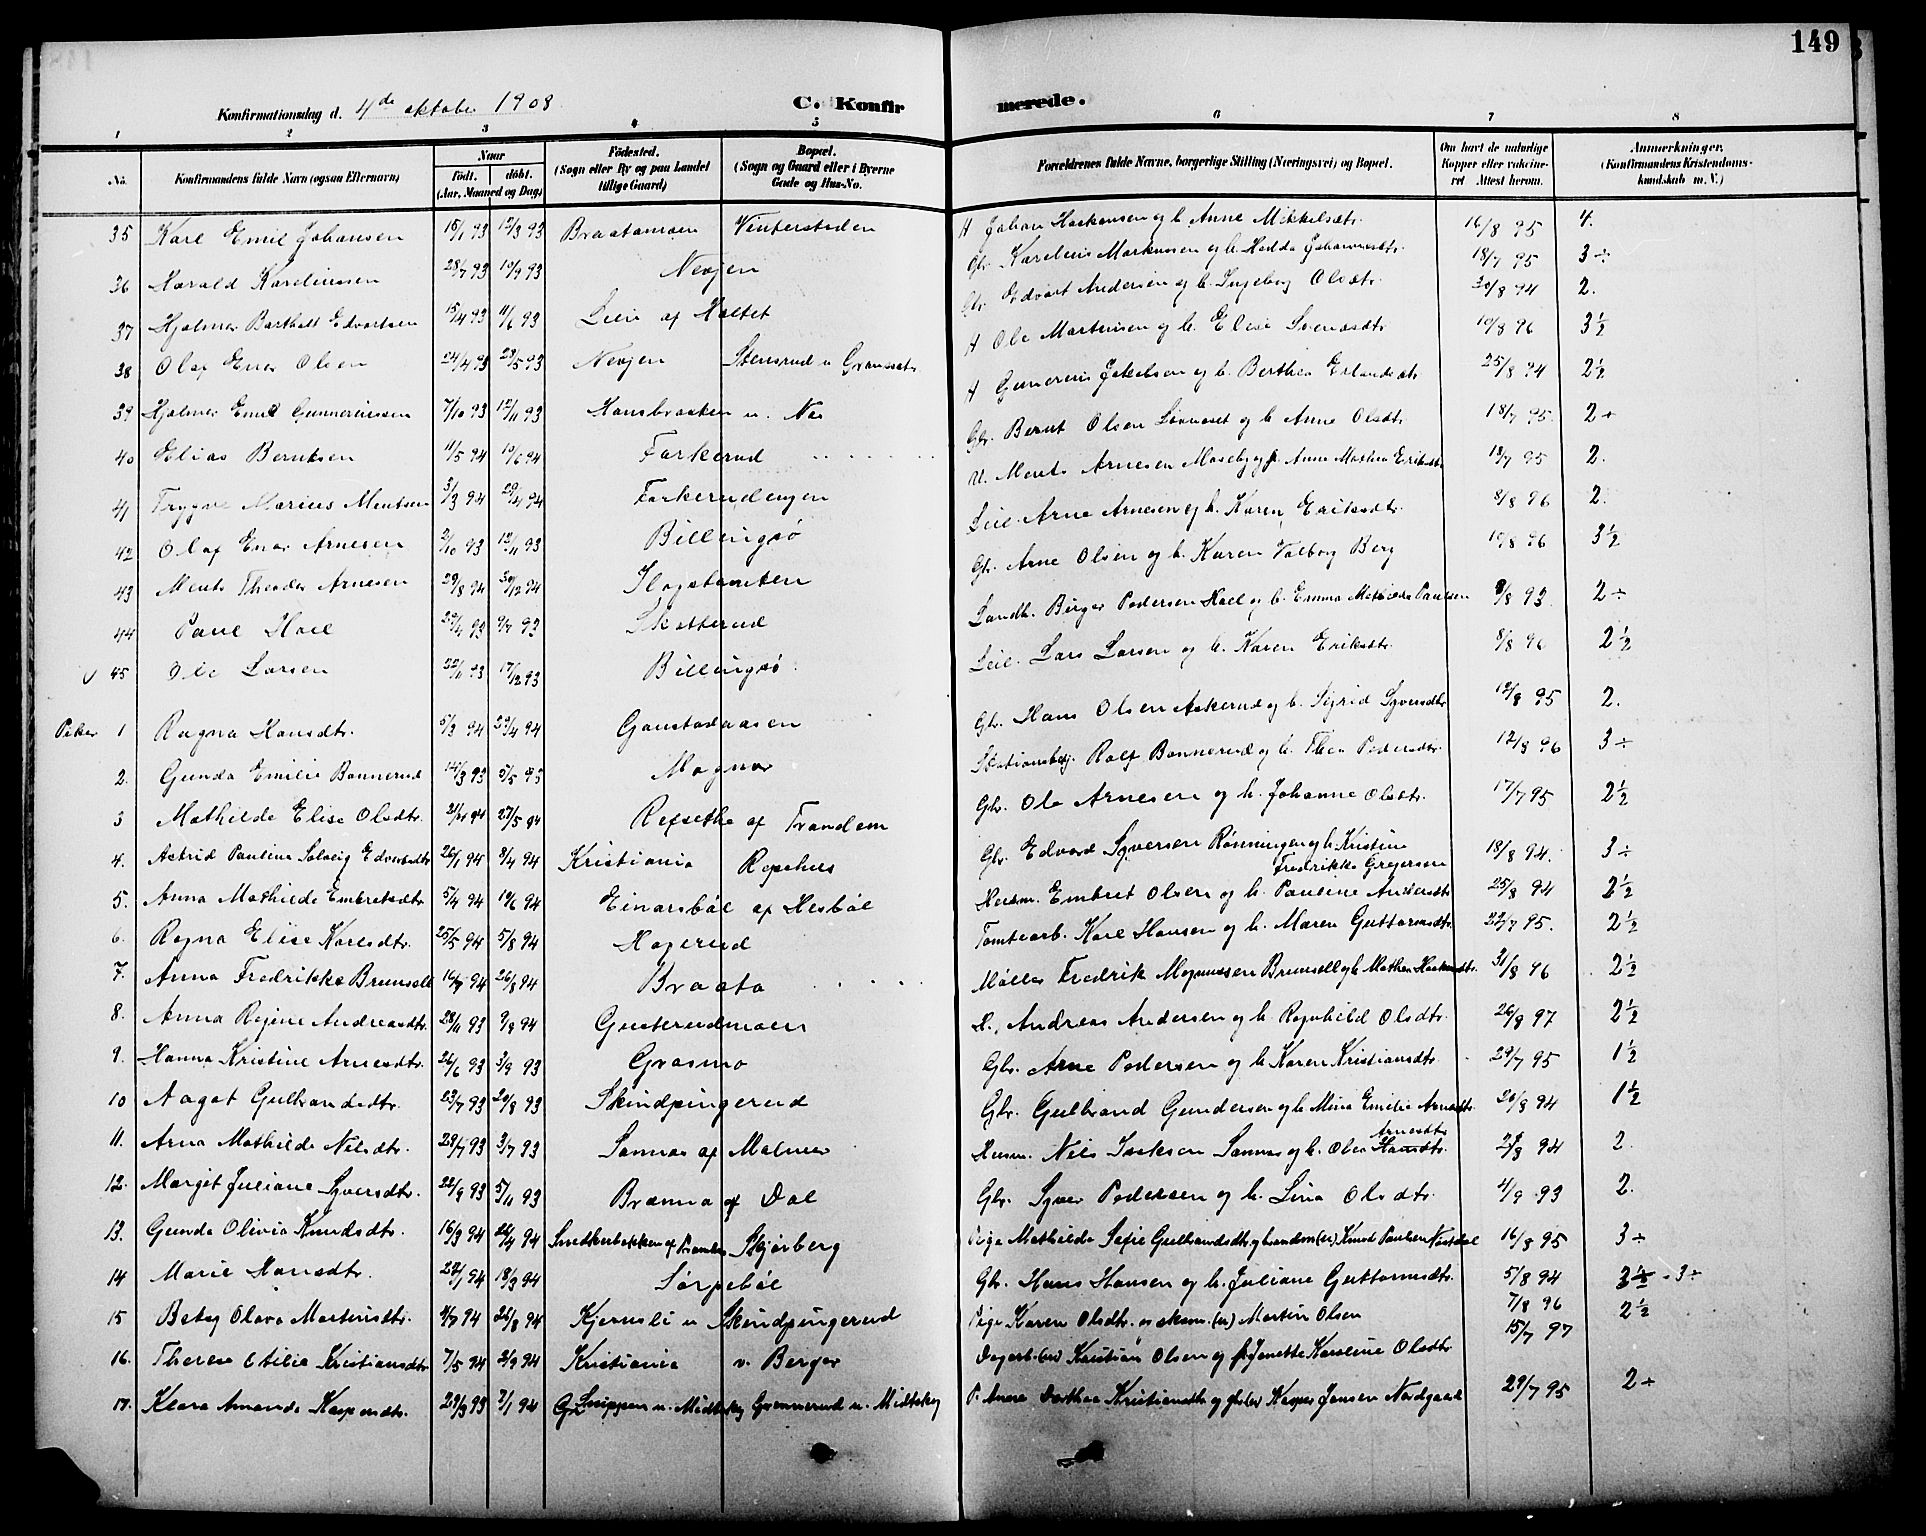 149
Konfirmationsdag d. 4de oktober 1908
C. Konfirmerede.
1 2 3 4 5 6 7 8
No.
Konfirmandens fulde Navn (ogsaa Efternavn)
Naar
födt. döbt.
(Aar, Maaned og Dag)
Födested.
(Sogn eller By og paa Landet
tillige Gaard)
Bopæl.
(Sogn og Gaard eller i Byerne
Gade og Hus-No.
Forældrenes fulde Navne, borgerlige Stilling (Næringsvei) og Bopæl.
Om havt de naturlige
Kopper eller vakcineret
Attest herom.
Anmerkninger.
(Konfirmandens Kristendomskundskab
m. V.)
35 Karl Emil Johansen 15/1 93 12/3 93 Braatamoen Vintersteden Johan Haakensen og h. Anne Mikkelsdtr. 16/8 95 4.
36 Harald Kareliussen 28/7 93 10/9 93 Nevjen Gbr. Karelius Markussen og h. Hedda Johannesdtr. 18/7 95 3÷
37 Hjalmar Barthold Edvartsen 15/4 93 11/6 93 Leie af Haltet Gbr. Edvart Andersen og h. Ingeborg Olsdtr. 30/8 94 2.
38 Olaf Enar Olsen 24/4 93 28/5 93 Nevjen Stensrud u. Ole Martinsen og h. Elise Svensdtr 10/8 96 3½
39 Hjalmar Emil Gunneriussen 7/10 93 12/11 93 Hansbraaten u. Nes Gunerius Jakobsen og h. Berthea Erlandsdtr 25/8 94 2½
40 Elias Berntsen 11/5 94 10/6 94 Farkerud Gbr. Bernt Olsen og h. Anne Olsdtr. 18/7 95 2÷
41 Trygve Marius Mentsen 3/3 94 29/4 94 Farkerudengen Ments Arnesen Moseby og h. Anne Mathea Eriksdtr 18/7 95 2.
42 Olaf Enar Arnesen 2/10 93 12/11 93 Billingsö Leil. Arne Arnesen og h. Karen Eriksdtr. 8/8 96 2.
43 Ments Theodor Arnesen 29/8 94 30/12 94 Gbr. Arne Olsen og h. Karen Valborg Berg 10/8 96 3½
44 Paul Hoel 9/7 93 Skotterud Landh. Birger Pedersen Hoel og h. Emma Mathilde Paulsen 8/8 93 2÷
45 Ole Larsen 22/11 93 17/12 93 Billingsö Leil. Lars Larsen og h. Karen Eriksdtr. 8/8 96 2½
Piker 1 Ragna Hansdtr. 5/3 94 29/4 94 Gaustadaasen Gbr. Hans Olsen Askerud og h. Sigrid Syversdtr 12/8 95 2.
2. Gunda Emilie Bonnerud 14/3 93 5/5 93 Magnor Stationsbetj. Rolf Bonnerud og h. Thea Pedersdtr. 12/8 96 3÷
3 Mathilde Elise Olsdtr. 21/4 94 27/5 94 Refsethe af Trandem Gbr. Ole Arnesen og h. Johanne Olsdtr. 17/7 95 2½
4. Astrid Pauline Solveig Edvardsdtr 26/1 94 8/4 94 Kristiania Ropehus Gbr. Edvard Syversen Rønningen og h. Kristine
Fredrikke Gregersen 18/8 94. 3÷
5. Anna Mathilde Embretsdtr 5/4 94 10/6 94 Einarsböl af Hesböl Husm. Embret Olsen og h. Pauline Andersdtr 25/8 94 2½
6. Ragna Elise Karlsdtr. 25/5 94 5/8 94 Hagerud Tomtearb. Karl Hansen og h. Maren Guttormsdtr. 22/7 95. 2½
7. Anna Fredrikke Brunsell 16/7 94 26/8 94 Braata Møller Fredrik Magnussen Brunsell og h. Mathea Haakensdtr. 31/8 96 2½
8. Anna Regine Andreasdtr. 28/11 93 9/8 94 Gusterudmoen Andreas Andersen og h. Ragnhild Olsdtr. 26/8 97 2½
9. Hanna Kristine Arnesdtr. 26/6 93 3/9 93 Grasmo Gbr. Arne Pedersen og h. Karen Kristiansdtr. 29/7 95 1½
10 Aagot Gulbrandsdtr. 23/7 93 20/8 93 Skindpungerud Gbr. Gulbrand Gundersen og h. Mina Emilie Arnesdtr. 26/8 94 1½
11. Arna Mathilde Nilsdtr. 29/7 93 3/7 93 Sannas af Malmer Husm. Nils Isaksen Sannas og h. Olea Hansdtr. Arnesdtr 27/8 94 2.
12. Margit Juliane Syversdtr. 22/9 93 5/11 93 Brænna af Dal Gbr. Syver Pedersen og h. Lina Olsdtr. 4/9 93 2.
13. Gunda Olivia Knudsdtr. 16/3 94 22/4 94 Smedkerbakken af Skjørberg Pige Mathilde Sofie Gulbrandsdtr. og landm. (u) Knud Paulsen 16/8 95 3÷
14 Marie Hansdtr. 22/1 94 18/3 94 Sörpeböl Gbr. Hans Hansen og h. Juliane Guttormsdtr. 5/8 94 3½ . 3÷
15 Betsy Olava Martinsdtr. 4/7 94 26/8 94 Kjernsli u Skindpungerud Pige Karen Olsdtr. og skom. (u) Martin Olsen 7/8 96 2½
16. Therese Otilie Kristiansdtr 7/5 94 2/9 94 Kristiania v. Berger Dagarb. (u) Kristian Olsen og f. Janette Karoline Olsdtr 15/7 97
17. Klara Amanda Kaspersdtr. 29/3 93 7/1 94 Snippen u. Midtskog Grønnerud u. Midtskog P. Anne Dorthea Kristiansdtr og gbr. Kasper Jansen Nordgaard 29/7 95 2÷